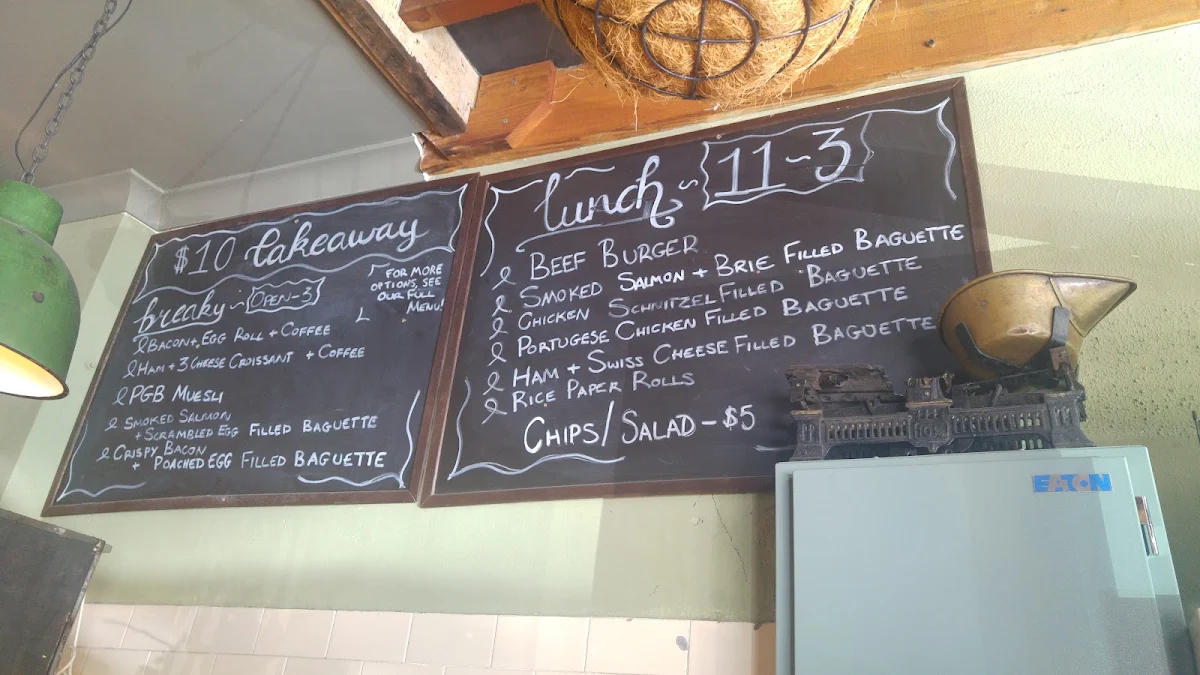 $10 takeaway
breaky ~ OPEN-3
FOR MORE
OPTIONS, SEE
OUR FULL
MENU!
BACON+, EGG ROLL + COFFEE
HAM + 3 CHEESE CROISSANT + COFFEE
PGB MUESLI
SMOKED SALMON
+ SCRAMBLED EGG FILLED BAGUETTE
CRISPY BACON
+ POACHED EGG FILLED BAGUETTE
lunch ~ 11-3
BEEF BURGER
SMOKED SALMON + BRIE FILLED BAGUETTE
CHICKEN SCHNITZEL FILLED BAGUETTE
PORTUGESE CHICKEN FILLED BAGUETTE
HAM + SWISS CHEESE FILLED BAGUETTE
RICE PAPER ROLLS
CHIPS/SALAD - $5
EATON